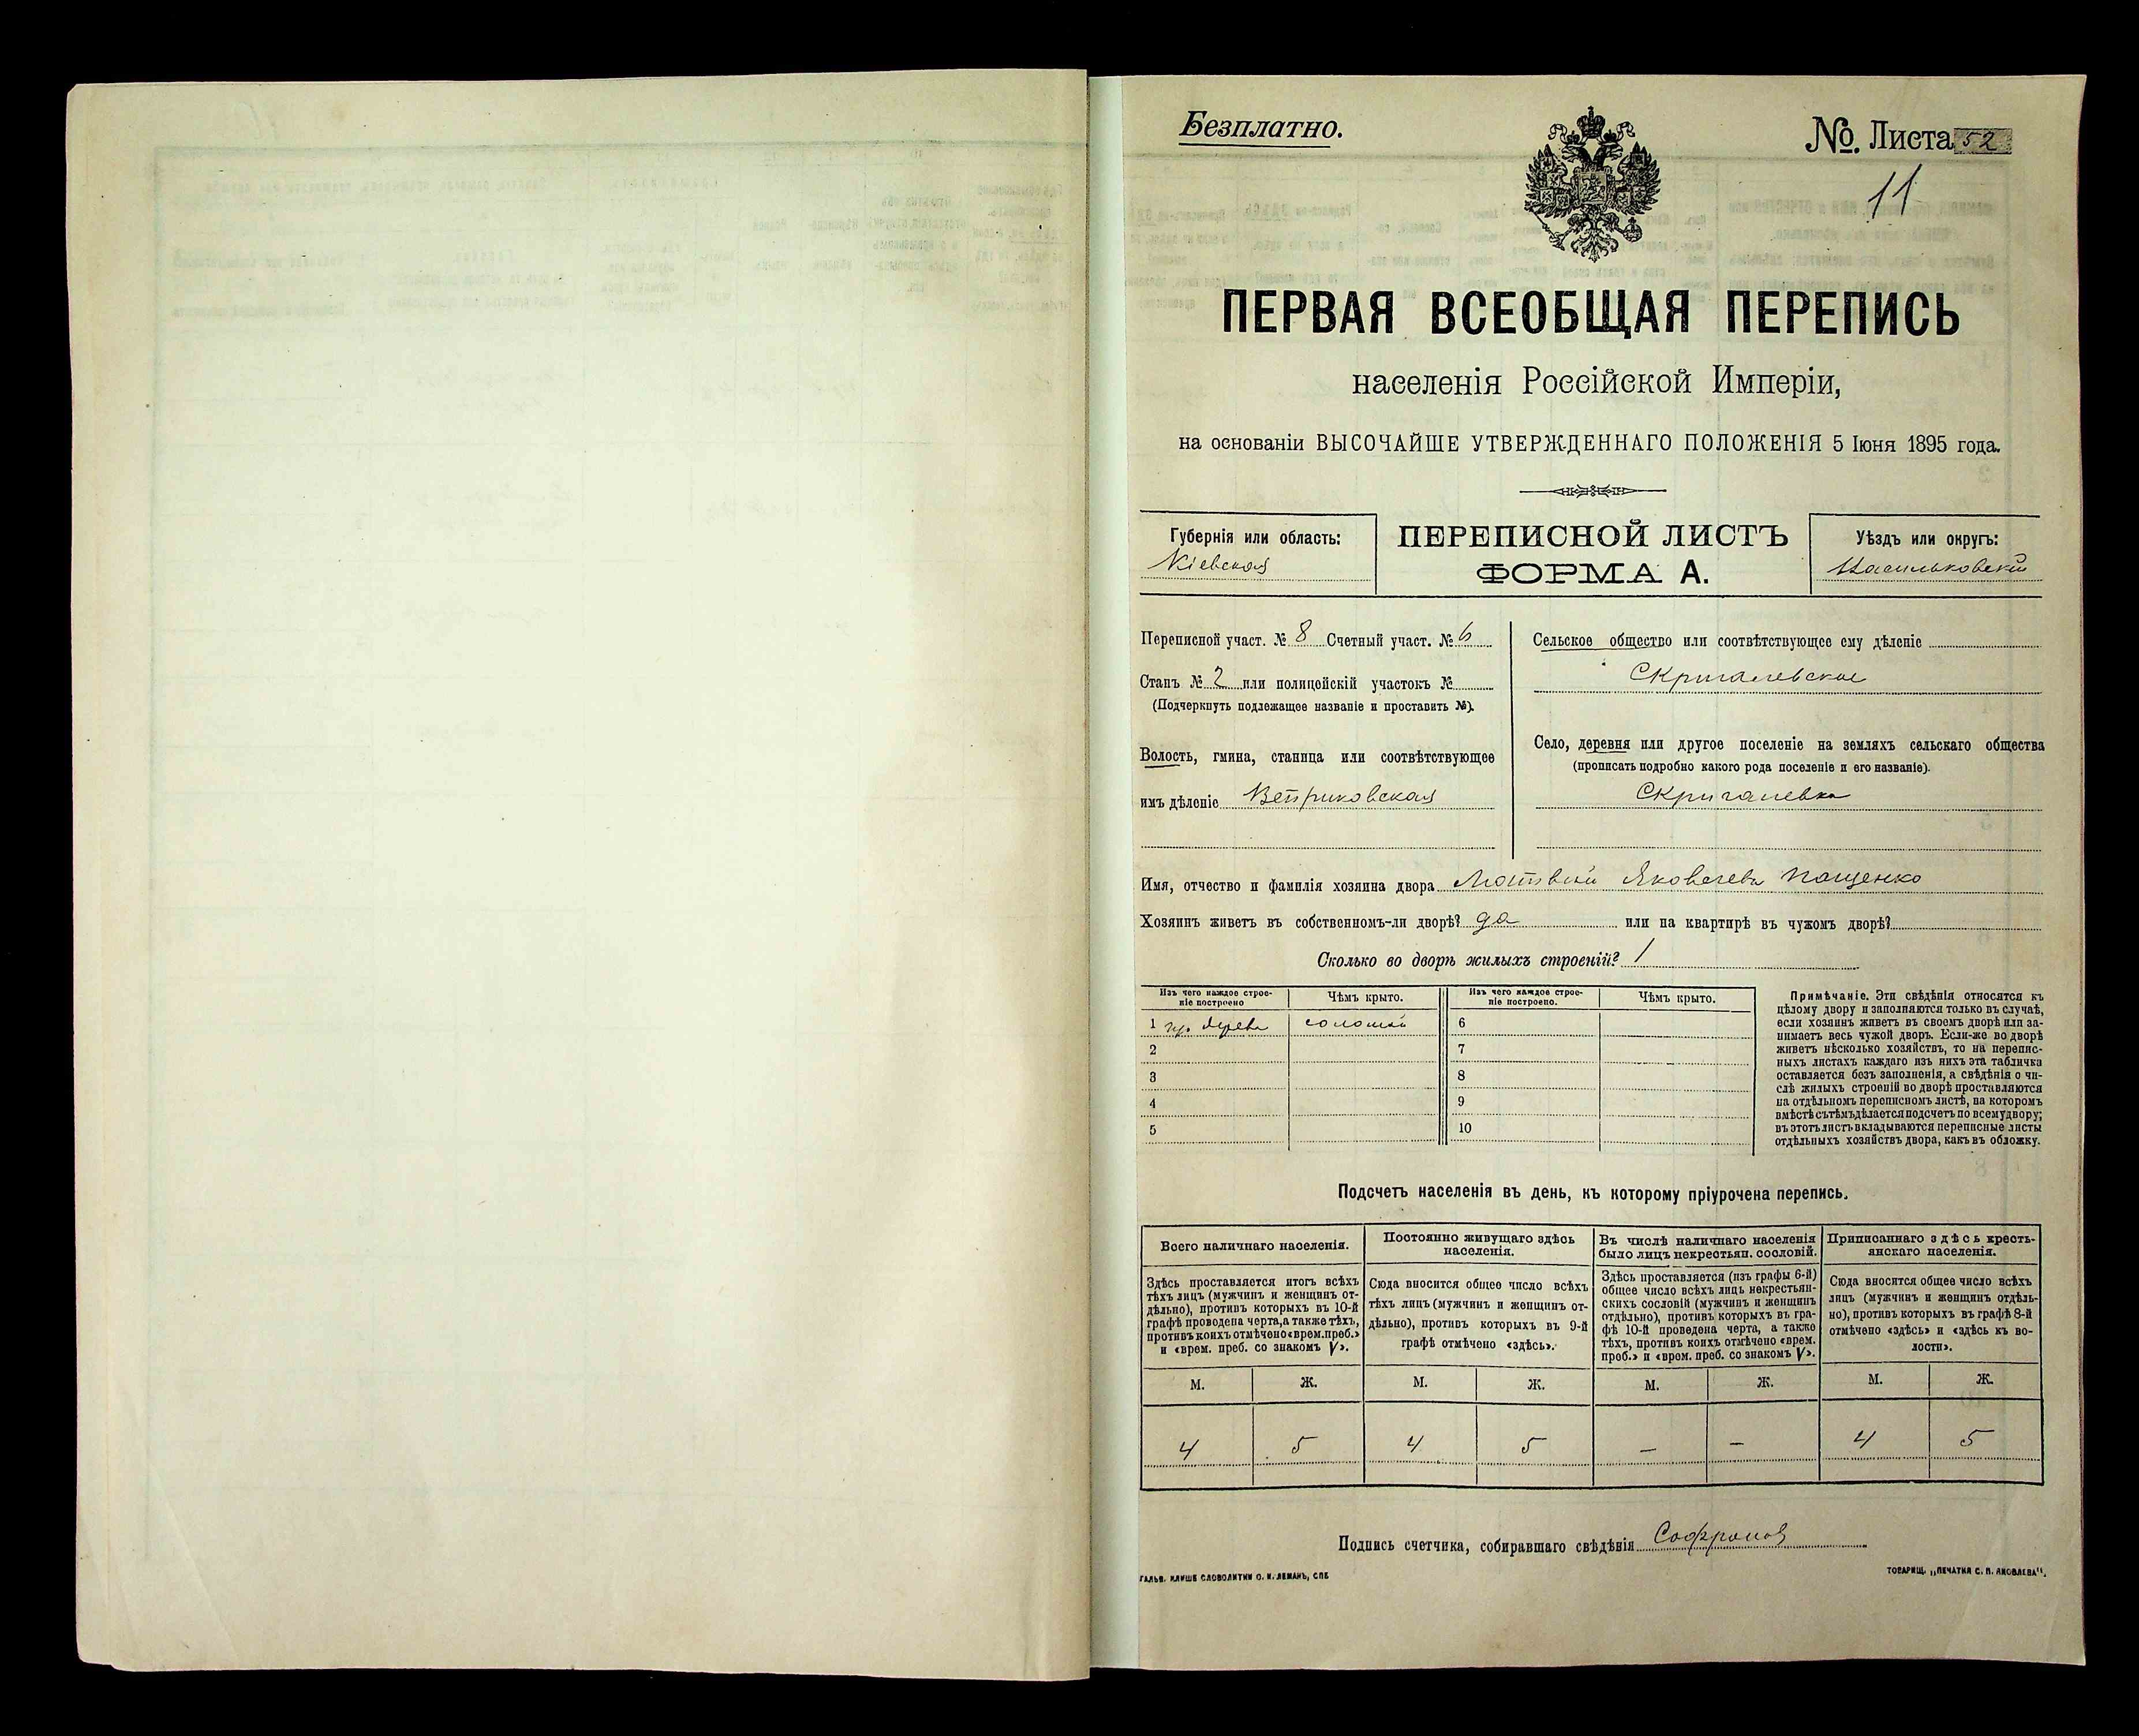 Безплатно.
№. Листа 52
11
ПЕРВАЯ ВСЕОБЩАЯ ПЕРЕПИСЬ
населенія Россійской Имперіи,
на основаніи ВЫСОЧАЙШЕ УТВЕРЖДЕННАГО ПОЛОЖЕНІЯ 5 Іюня 1895 года.
Губернія или область:
Кіевская
ПЕРЕПИСНОЙ ЛИСТЪ
ФОРМА А.
Уѣздъ или округъ:
Васильковскій
Переписной участ. № 8 Счетный участ. № 6
Станъ № 2 или полицейскій участокъ №
(Подчеркнуть подлежащее названіе и проставить №).
Волость, гмина, станица или соотвѣтствующее
имъ дѣленіе Веприковская
Сельское общество или соотвѣтствующее ему дѣленіе
Скригалевское
Село, деревня или другое поселеніе на земляхъ сельскаго общества
(прописать подробно какого рода поселеніе и его названіе).
Скригалевка
Имя, отчество и фамилія хозяина двора Матвій Яковлевъ Пащенко
Хозяинъ живетъ въ собственномъ-ли дворѣ? да или на квартирѣ въ чужомъ дворѣ?
Сколько во дворѣ жилыхъ строеній? 1
Изъ чего каждое строе-
ніе построено
Чѣмъ крыто.
Изъ чего каждое строе-
ніе построено.
Чѣмъ крыто.
1 дерева соломой 6
2 7
3 8
4 9
5 10
Примѣчаніе. Эти свѣдѣнія относятся къ
цѣлому двору и заполняются только въ случаѣ,
если хозяинъ живетъ въ своемъ дворѣ или за-
нимаетъ весь чужой дворъ. Если-же во дворѣ
живетъ нѣсколько хозяйствъ, то на перепис-
ныхъ листахъ каждаго изъ нихъ эта табличка
оставляется безъ заполненія, а свѣдѣнія о чи-
слѣ жилыхъ строеній во дворѣ проставляются
на отдѣльномъ переписномъ листѣ, на которомъ
вмѣстѣ съ тѣмъ дѣлается подсчетъ по всему двору;
въ этотъ листъ вкладываются переписные листы
отдѣльныхъ хозяйствъ двора, какъ въ обложку.
Подсчетъ населенія въ день, къ которому пріурочена перепись.
Всего наличнаго населенія.
Здѣсь проставляется итогъ всѣхъ
тѣхъ лицъ (мужчинъ и женщинъ от-
дѣльно), противъ которыхъ въ 10-й
графѣ проведена черта, а также тѣхъ,
противъ коихъ отмѣчено «врем. преб.»
и «врем. преб. со знакомъ V».
Постоянно живущаго здѣсь
населенія.
Сюда вносится общее число всѣхъ
тѣхъ лицъ (мужчинъ и женщинъ от-
дѣльно), противъ которыхъ въ 9-й
графѣ отмѣчено «здѣсь».
Въ числѣ наличнаго населенія
было лицъ некрестьян. сословій.
Здѣсь проставляется (изъ графы 6-й)
общее число всѣхъ лицъ некрестьян-
скихъ сословій (мужчинъ и женщинъ
отдѣльно), противъ которыхъ въ гра-
фѣ 10-й проведена черта, а также
тѣхъ, противъ коихъ отмѣчено «врем.
преб.» и «врем. преб. со знакомъ V».
Приписаннаго здѣсь кресть-
янскаго населенія.
Сюда вносится общее число всѣхъ
лицъ (мужчинъ и женщинъ отдѣль-
но), противъ которыхъ въ графѣ 8-й
отмѣчено «здѣсь» и «здѣсь къ во-
лости».
М. Ж. М. Ж. М. Ж. М. Ж.
4 5 4 5 — — 4 5
Подпись счетчика, собиравшаго свѣдѣнія Софронов
ГАЛЬВ. КЛИШЕ СЛОВОЛИТНИ О. И. ЛЕМАНЪ, СПБ
ТОВАРИЩ. „ПЕЧАТНЯ С. П. ЯКОВЛЕВА".